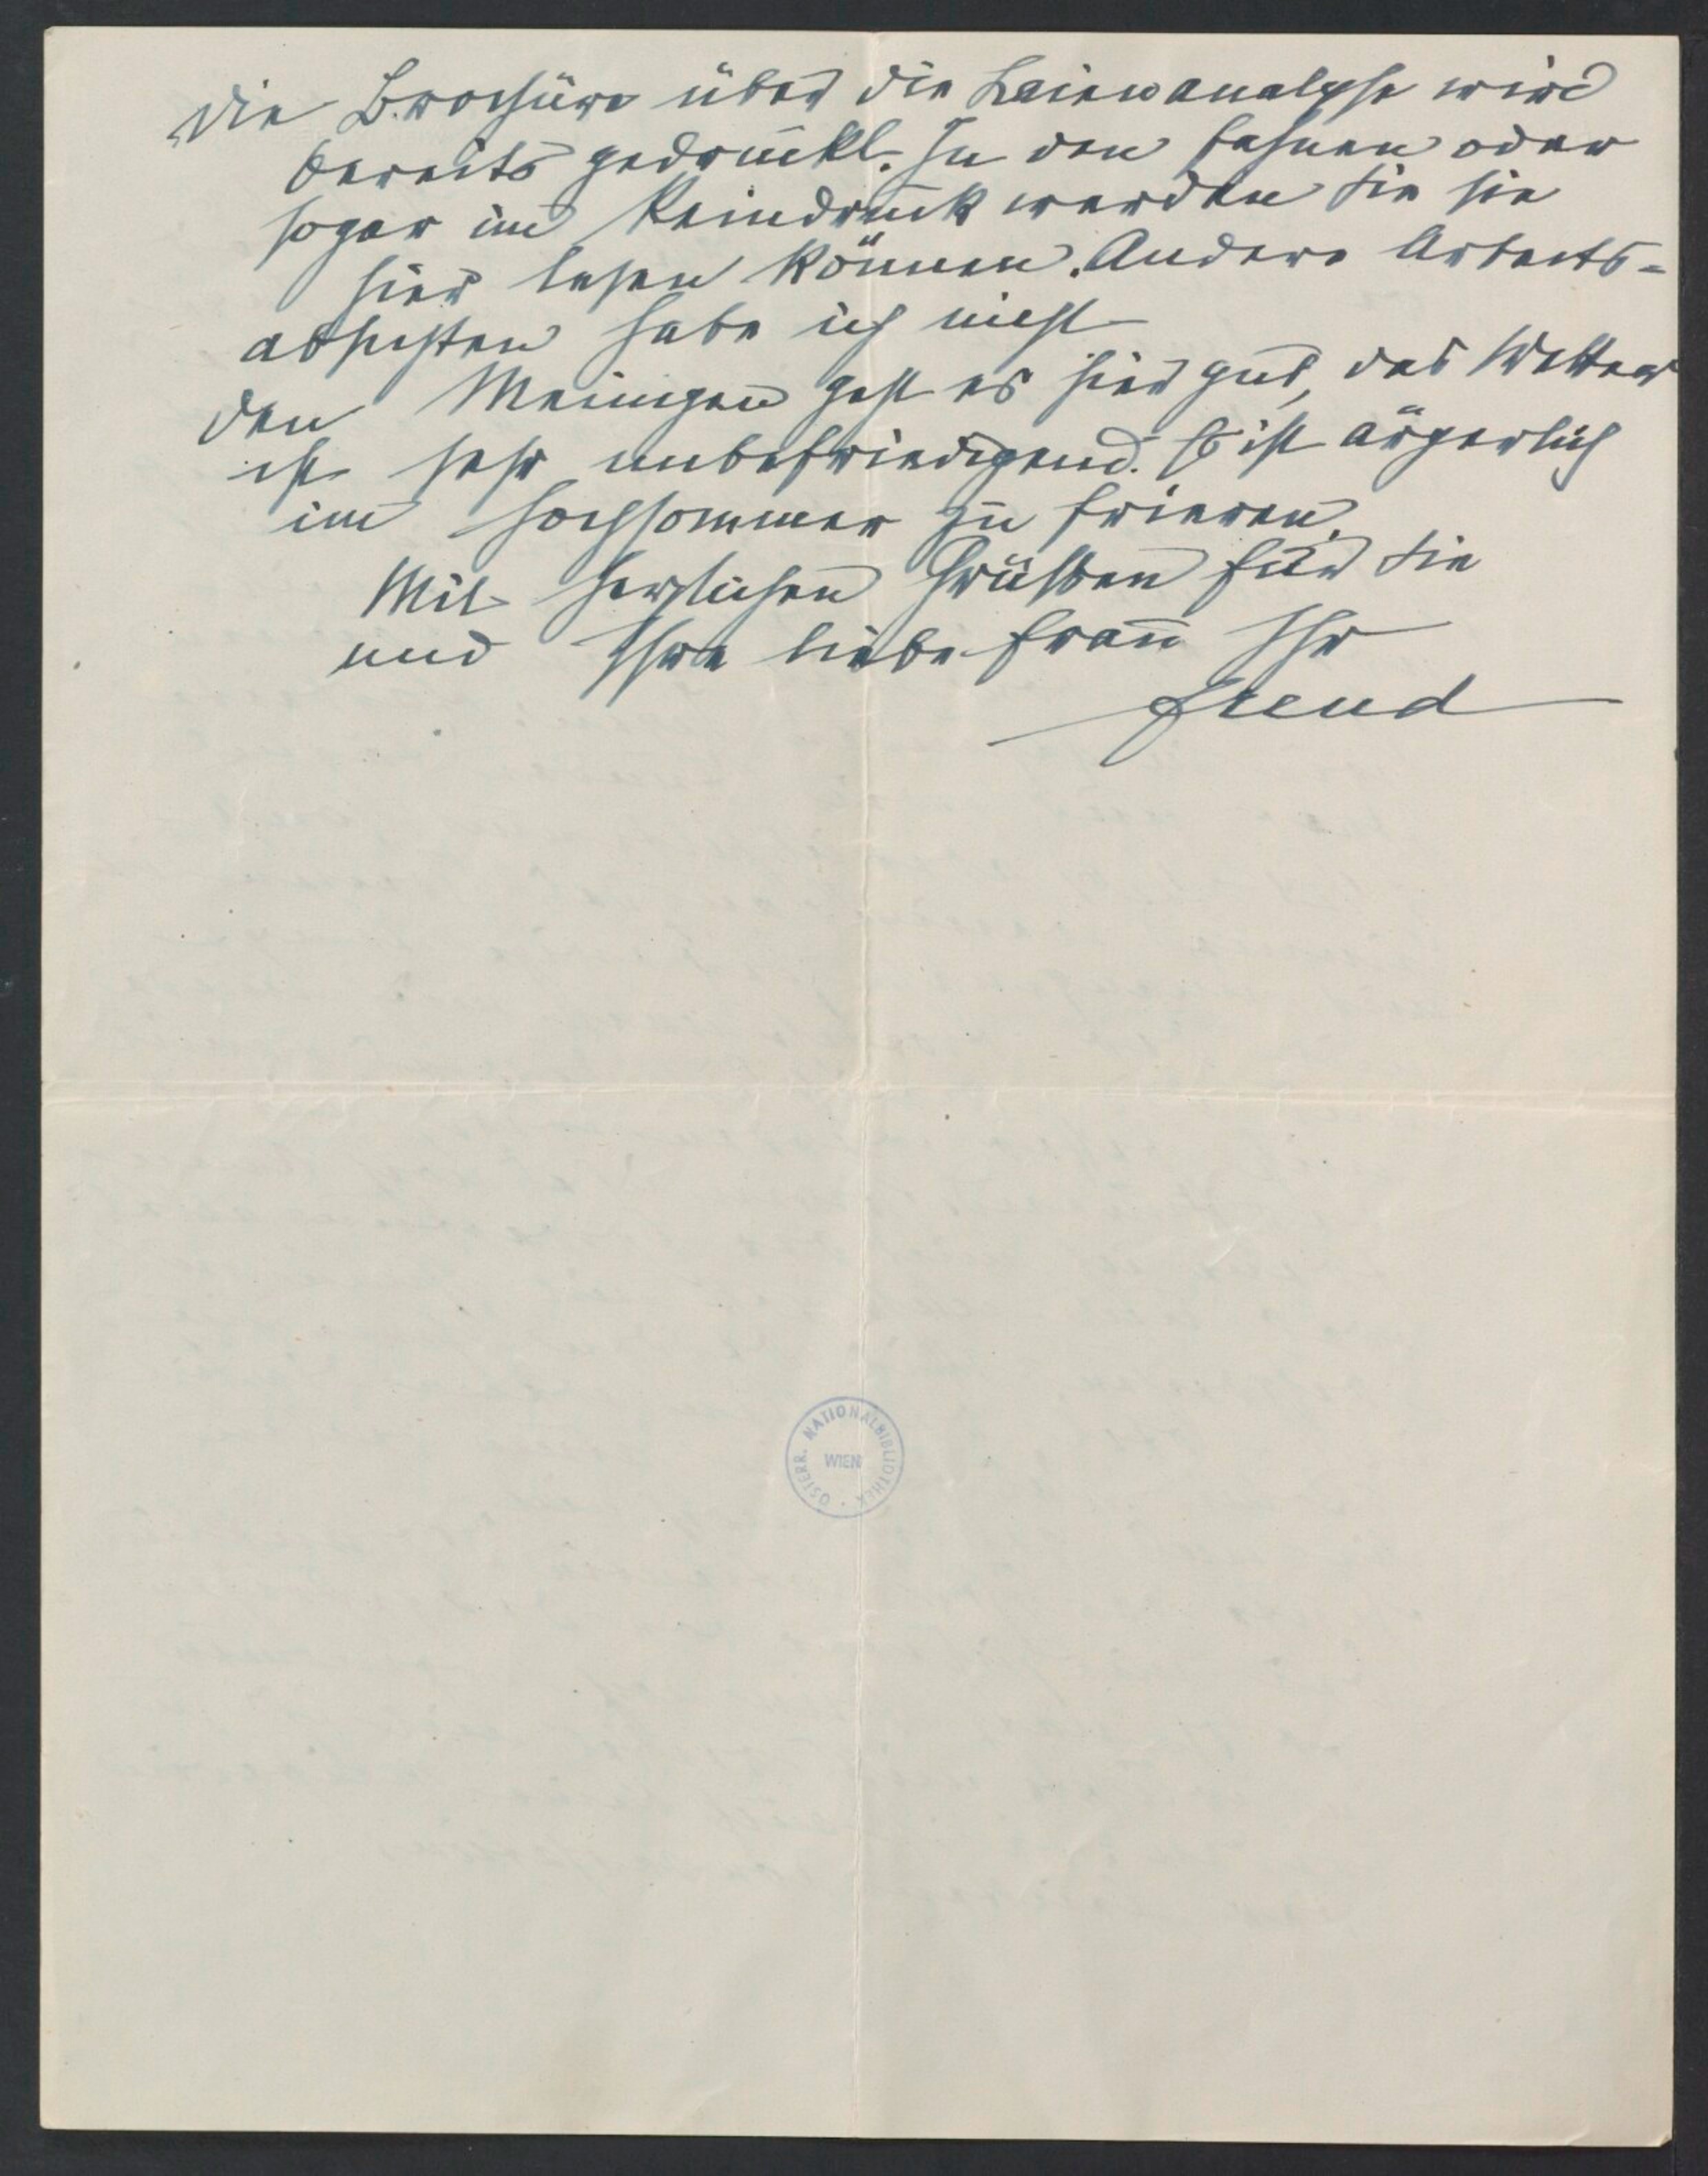 Die Brochüre über die Laienanalyse wird
bereits gedruckt. In den Fahnen oder
sogar im Reindruck werden Sie sie
hier lesen können. Andere Arbeits-
absichten habe ich nicht
Den Meinigen geht es hier gut, das Wetter
ist sehr unbefriedigend. Es ist ärgerlich
im Hochsommer zu frieren.
Mit herzlichen Grüßen für Sie
und Ihre liebe Frau Ihr
Freud
ÖSTERR. NATIONALBIBLIOTHEK
WIEN